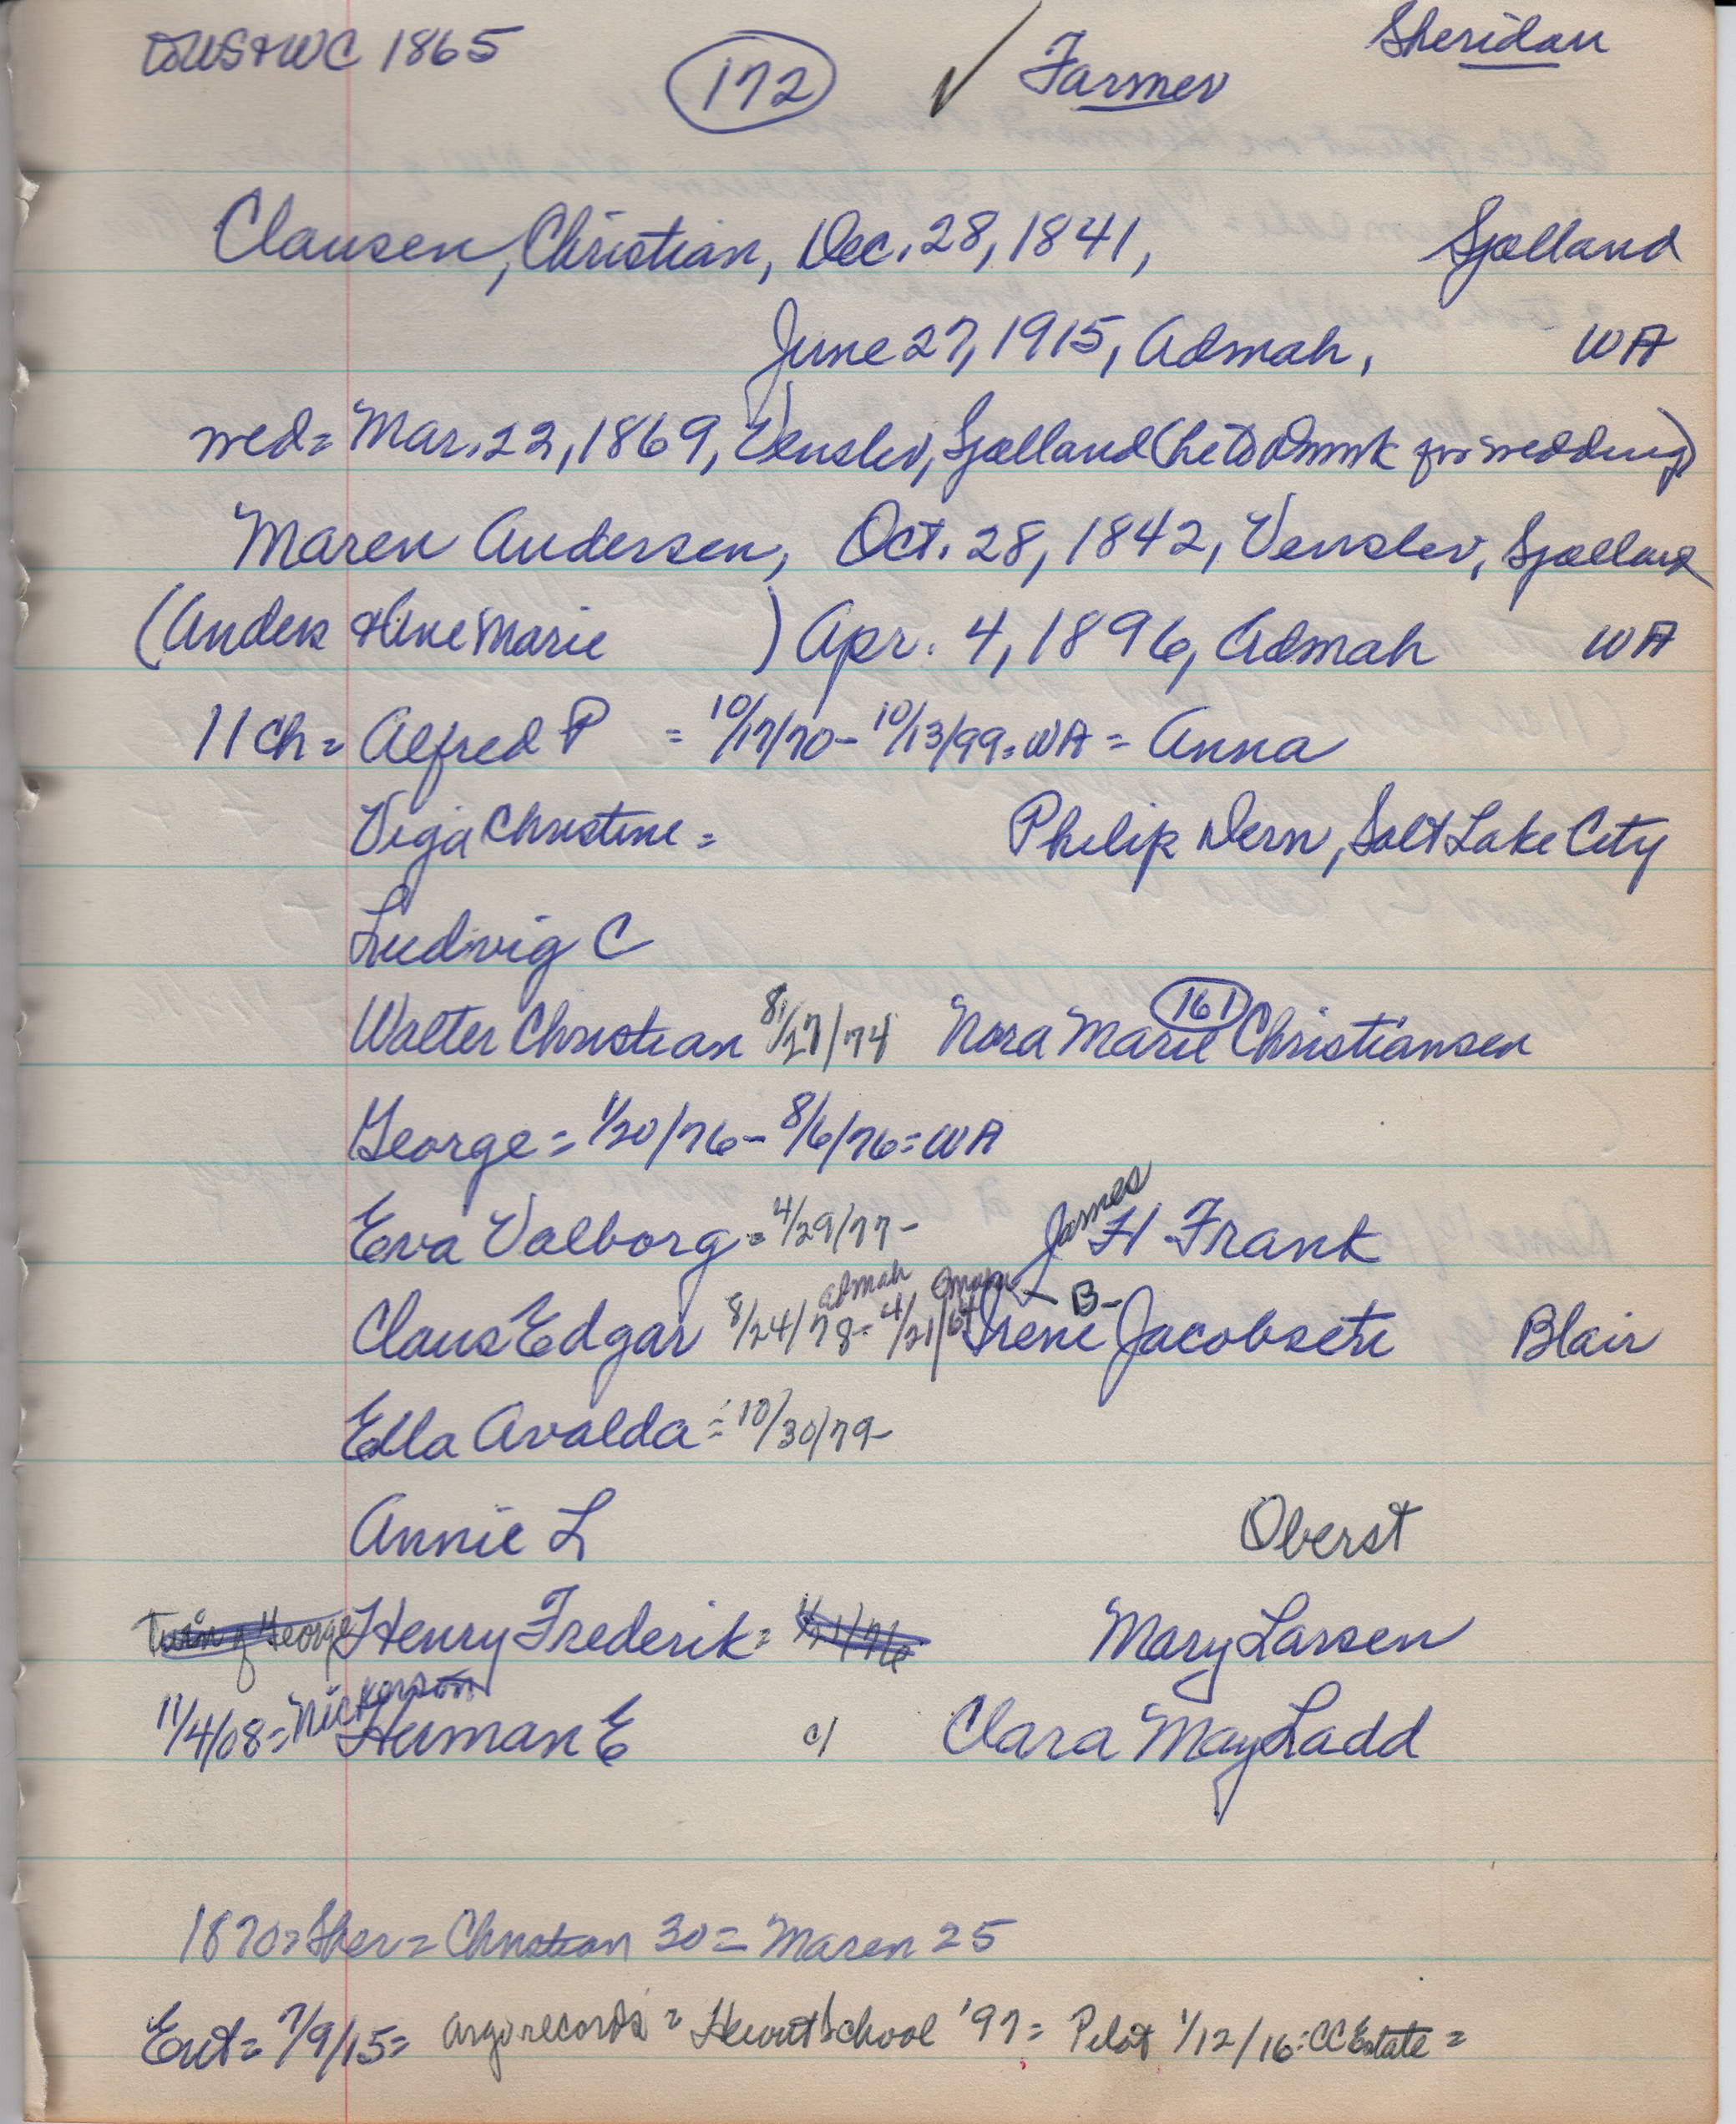 to US & WC 1865 (172) ✓ Farmer Sheridan
Clausen, Christian, Dec. 28, 1841, Sjælland
June 27, 1915, Admah, WA
wed= Mar. 22, 1869, Venslev, Sjælland (he to Dnmk for wedding)
Maren Andersen, Oct. 28, 1842, Venslev, Sjælland
(Anders & Ane Marie ) Apr. 4, 1896, Admah WA
11 ch= Alfred P = 10/17/70 - 10/13/99 = WA = Anna
Viga Christine = Philip Dern, Salt Lake City
Ludvig C
161
Walter Christian 8/27/74 Nora Marie Christiansen
George = 1/20/76 - 8/6/76 = WA
Eva Valborg = 4/29/77 - James H Frank
Admah B-
Claus Edgar 8/24/78 - 4/21/67 Irene Jacobsen Blair
Ella Avalda = 10/30/79 -
Annie L Oberst
Twin of George Henry Frederik = Mary Larsen
11/4/08 = Nickerson Herman E c/ Clara May Ladd
1870 = Sher = Christian 30 = Maren 25
Ent = 7/9/15 = Argo records = School '97 = Pilot 1/12/16 = CC Estate =